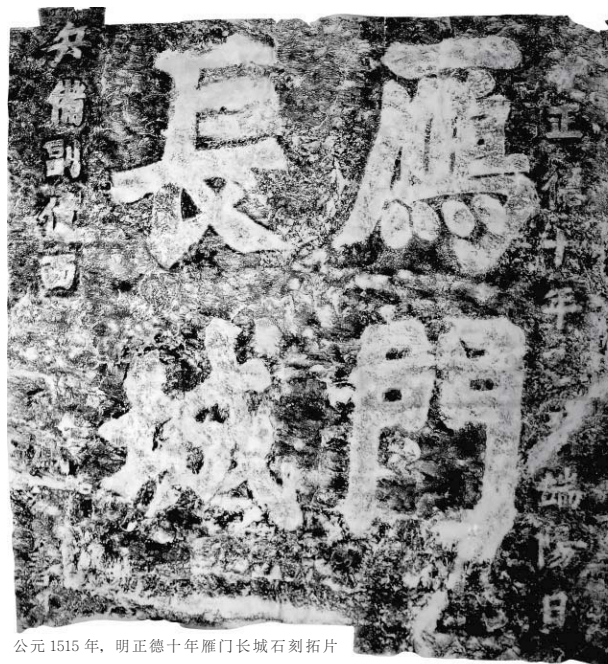 正德十年 端陽日
鴈門
長城
兵備副使西
公元1515年，明正德十年雁门长城石刻拓片